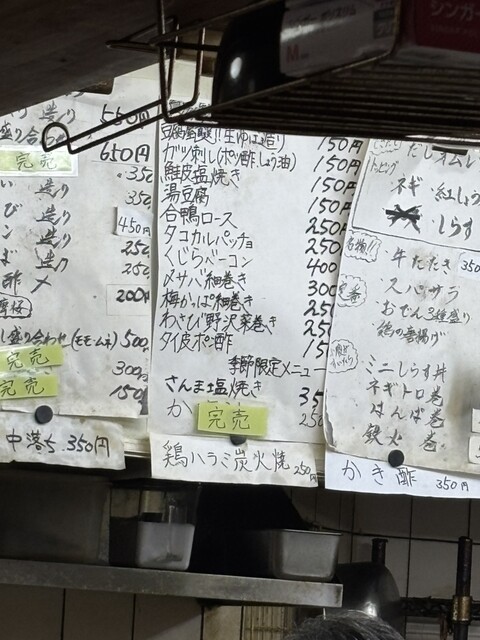 造り 550円
盛り合 650円
完売
350
い 造り 350
び 造り 450円
ン 造り 250
造り 250
酢〆 200円
し盛り合わせ(モモ・ムネ) 500
完売 300
完売 150
中落ち 350円
生ゆば造り 150円
ガツ刺し(ポン酢、しょう油) 150円
鮭皮塩焼き 150円
湯豆腐 150
合鴨ロース 250
タコカルパッチョ 250
くじらベーコン 400
〆サバ細巻き 300
梅かっぱ細巻き 250
わさび野沢菜巻き 250
タイ皮ポン酢 15
季節限定メニュー
さんま塩焼き 35
か 完売 250
鶏ハラミ炭火焼 250円
だしオムレ
トッピング
ネギ・紅しょう
しらす
名物!!
牛たたき 350
定番
スパサラ
おでん3種盛り
鶏の唐揚げ
ミニしらす丼
ネギトロ巻
はんぱ巻
鉄火巻
かき酢 350円
シンガー
M